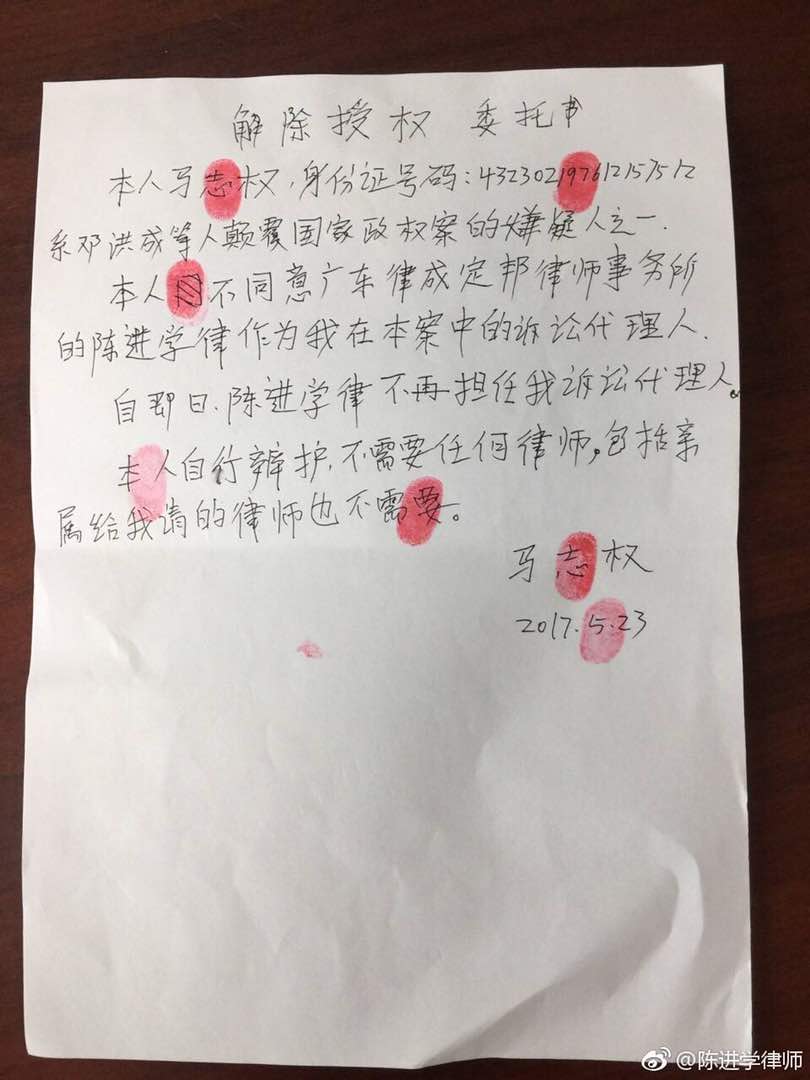 解除授权 委托书
本人马志权，身份证号码：432302197612157512
系邓洪成等人颠覆国家政权案的嫌疑人之一.
本人不同意广东律成定邦律师事务所
的陈进学律作为我在本案中的诉讼代理人.
自即日.陈进学律不再担任我诉讼代理人。
本人自行辩护.不需要任何律师。包括亲
属给我请的律师也不需要。
马志权
2017.5.23
@陈进学律师